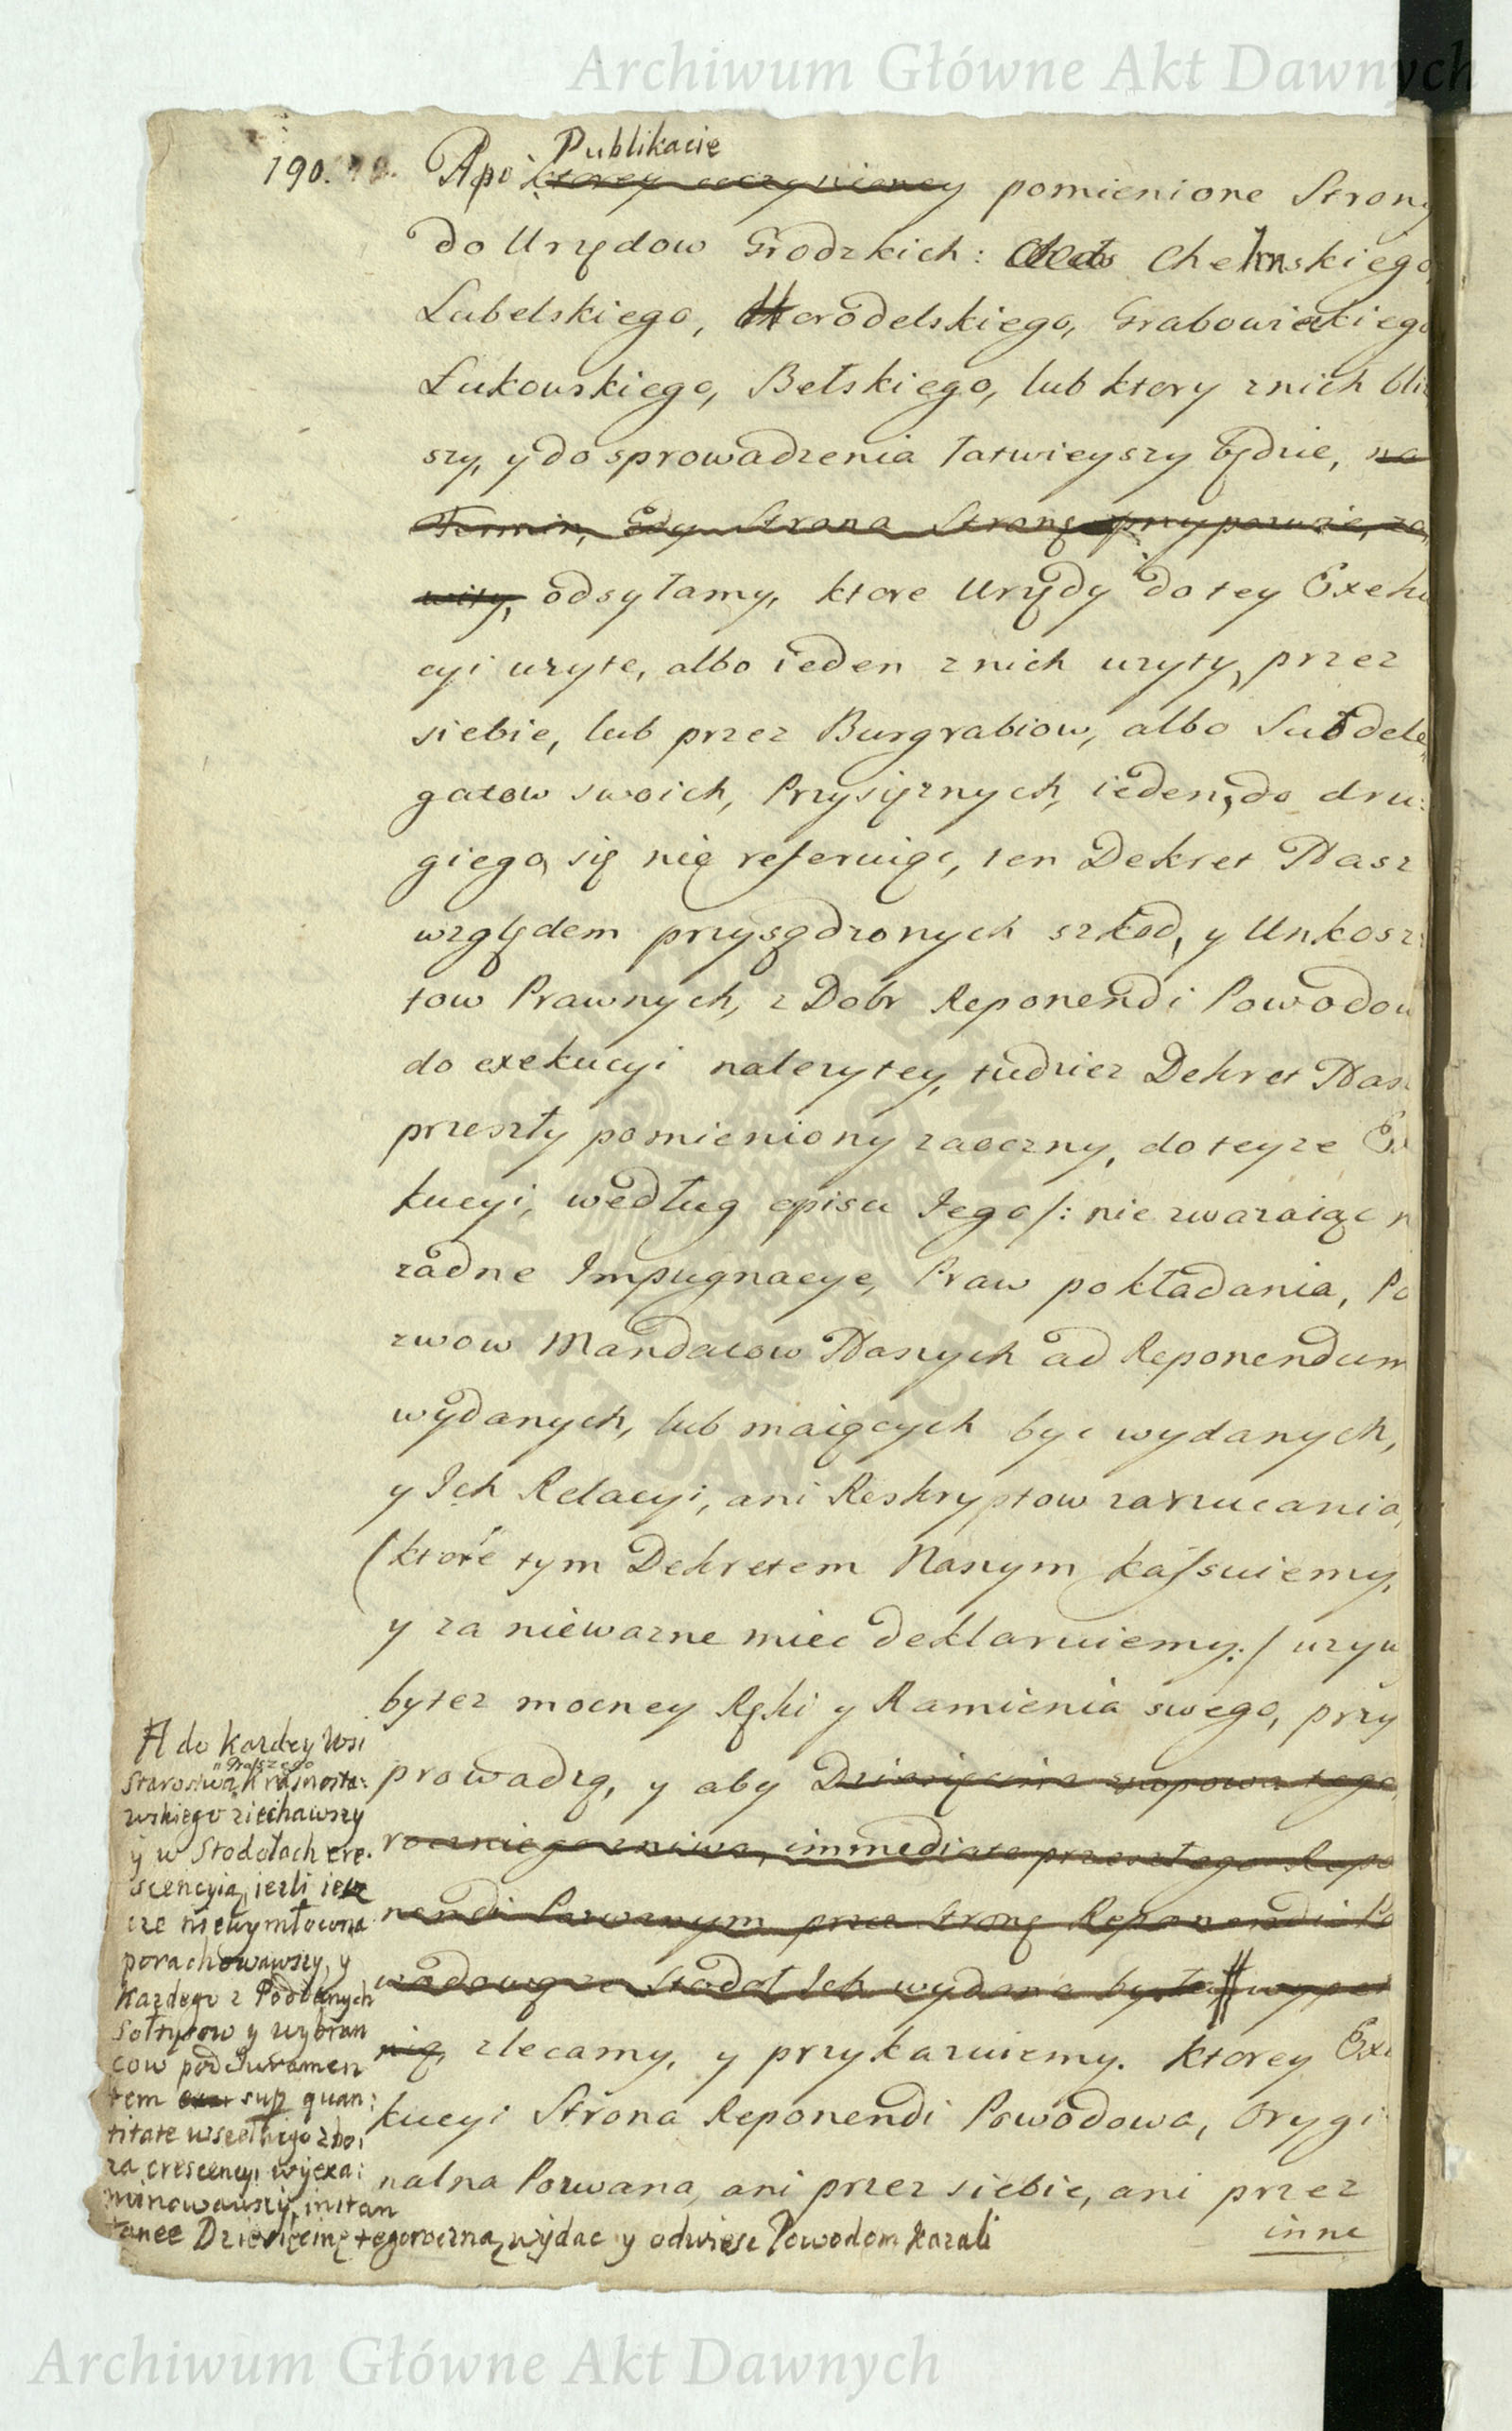 Archiwum Główne Akt Dawnych
190.
Publikacie
A po ktorey uczynioney pomienione Strony
do Urzędow Grodzkich: Chełmskiego,
Lubelskiego, Horodelskiego, Grabowieckiego
Łukowskiego, Bełskiego, lub ktory z nich bliż
szy, y do sprowadzenia łatwieyszy będzie, na
Termin, Gdy Strona Stronę przypozwie, za
wity, odsyłamy, ktore Urzędy do tey Exeku
cyi uzyte, albo ieden z nich uzyty, przez
siebie, lub przez Burgrabiow, albo Subdele
gatow swoich, Przysięznych, ieden, do dru:
giego się nie referuiąc, ten Dekret Nasz
względem przysądzonych szkod, y Unkosz
tow Prawnych, z Dobr Reponendi Powodow
do exekucyi nalezytey, tudziez Dekret Nasz
przeszły pomieniony zaoczny, do teyze Ex
kucyi, według opisu Jego /: nie zwazaiąc n
zadne Impugnacye, Praw pokładania, Po
zwow Mandatow Naszych ad Reponendum
wydanych, lub maiących byc wydanych,
y Ich Relacyi, ani Reskryptow zarzucania,
(ktore tym Dekretem Naszym kassuiemy,
y za niewazne miec deklaruiemy :/ uzyw
bytez mocney Ręki y Ramienia swego, przy
prowadzą, y aby Dziesięcina snopowa tego
rocznego zniwa, immediate przeszłego Repo
nendi Pozwanym przez Stronę Reponendi Po
wodową ze Stodoł Ich wydana była # wypeł
nią, zlecamy, y przykazuiemy. Ktorey Exe
kucyi Strona Reponendi Powodowa, Orygi
nalna Pozwana, ani przez siebie, ani przez
inne
A do kazdey Wsi
Naszego
Starostwa Krasnosta:
wskiego ziechawszy
y w Stodołach cre.
scencyią, iezli iesz
cze niewymłocona
porachowawszy, y
kazdego z Poddanych
Sołtysow y wybran
cow pod Juramen
tem sup quan:
titate wszelkiego zbo:
za crescencyi wyexa:
minowawszy, instan
tanee Dziesięcinę tegoroczną, wydac y odwiesc Powodom kazali
Archiwum Główne Akt Dawnych